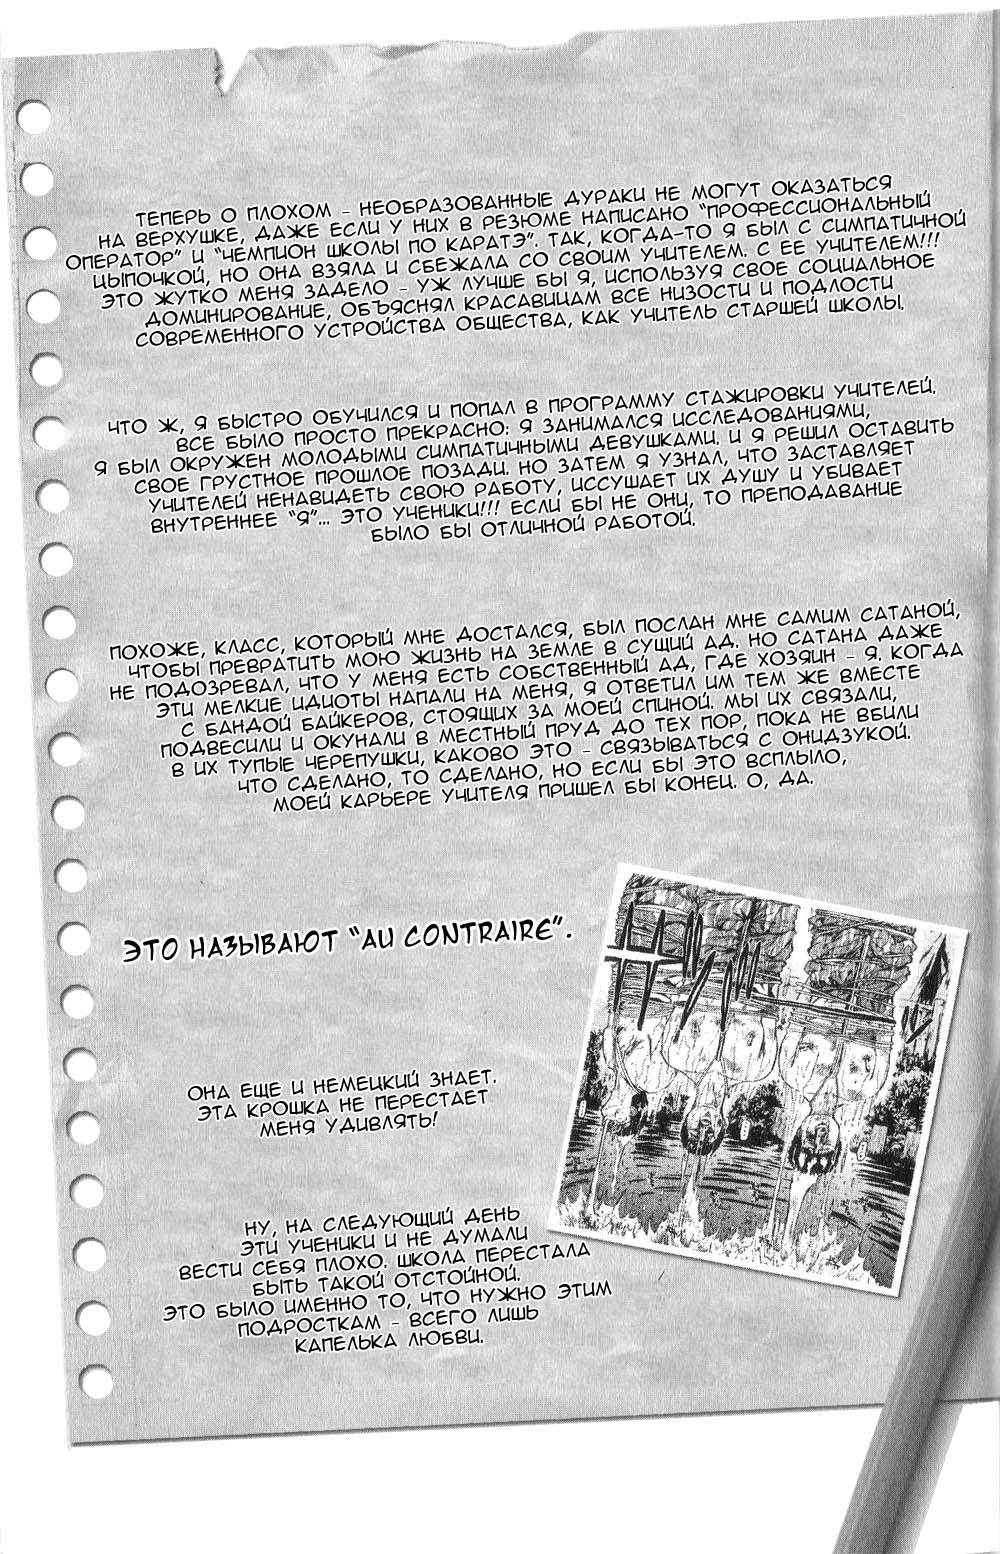 ТЕПЕРЬ О ПЛОХОМ - НЕОБРАЗОВАННЫЕ ДУРАКИ НЕ МОГУТ ОКАЗАТЬСЯ
НА ВЕРХУШКЕ, ДАЖЕ ЕСЛИ У НИХ В РЕЗЮМЕ НАПИСАНО "ПРОФЕССИОНАЛЬНЫЙ
ОПЕРАТОР" И "ЧЕМПИОН ШКОЛЫ ПО КАРАТЭ". ТАК, КОГДА-ТО Я БЫЛ С СИМПАТИЧНОЙ
ЦЫПОЧКОЙ, НО ОНА ВЗЯЛА И СБЕЖАЛА СО СВОИМ УЧИТЕЛЕМ. С ЕЕ УЧИТЕЛЕМ!!!
ЭТО ЖУТКО МЕНЯ ЗАДЕЛО - УЖ ЛУЧШЕ БЫ Я, ИСПОЛЬЗУЯ СВОЕ СОЦИАЛЬНОЕ
ДОМИНИРОВАНИЕ, ОБЪЯСНЯЛ КРАСАВИЦАМ ВСЕ НИЗОСТИ И ПОДЛОСТИ
СОВРЕМЕННОГО УСТРОЙСТВА ОБЩЕСТВА, КАК УЧИТЕЛЬ СТАРШЕЙ ШКОЛЫ.
ЧТО Ж, Я БЫСТРО ОБУЧИЛСЯ И ПОПАЛ В ПРОГРАММУ СТАЖИРОВКИ УЧИТЕЛЕЙ.
ВСЕ БЫЛО ПРОСТО ПРЕКРАСНО: Я ЗАНИМАЛСЯ ИССЛЕДОВАНИЯМИ,
Я БЫЛ ОКРУЖЕН МОЛОДЫМИ СИМПАТИЧНЫМИ ДЕВУШКАМИ. И Я РЕШИЛ ОСТАВИТЬ
СВОЕ ГРУСТНОЕ ПРОШЛОЕ ПОЗАДИ. НО ЗАТЕМ Я УЗНАЛ, ЧТО ЗАСТАВЛЯЕТ
УЧИТЕЛЕЙ НЕНАВИДЕТЬ СВОЮ РАБОТУ, ИССУШАЕТ ИХ ДУШУ И УБИВАЕТ
ВНУТРЕННЕЕ "Я"... ЭТО УЧЕНИКИ!!! ЕСЛИ БЫ НЕ ОНИ, ТО ПРЕПОДАВАНИЕ
БЫЛО БЫ ОТЛИЧНОЙ РАБОТОЙ.
ПОХОЖЕ, КЛАСС, КОТОРЫЙ МНЕ ДОСТАЛСЯ, БЫЛ ПОСЛАН МНЕ САМИМ САТАНОЙ,
ЧТОБЫ ПРЕВРАТИТЬ МОЮ ЖИЗНЬ НА ЗЕМЛЕ В СУЩИЙ АД. НО САТАНА ДАЖЕ
НЕ ПОДОЗРЕВАЛ, ЧТО У МЕНЯ ЕСТЬ СОБСТВЕННЫЙ АД, ГДЕ ХОЗЯИН - Я. КОГДА
ЭТИ МЕЛКИЕ ИДИОТЫ НАПАЛИ НА МЕНЯ, Я ОТВЕТИЛ ИМ ТЕМ ЖЕ ВМЕСТЕ
С БАНДОЙ БАЙКЕРОВ, СТОЯЩИХ ЗА МОЕЙ СПИНОЙ. МЫ ИХ СВЯЗАЛИ,
ПОДВЕСИЛИ И ОКУНАЛИ В МЕСТНЫЙ ПРУД ДО ТЕХ ПОР, ПОКА НЕ ВБИЛИ
В ИХ ТУПЫЕ ЧЕРЕПУШКИ, КАКОВО ЭТО - СВЯЗЫВАТЬСЯ С ОНИДЗУКОЙ.
ЧТО СДЕЛАНО, ТО СДЕЛАНО, НО ЕСЛИ БЫ ЭТО ВСПЛЫЛО,
МОЕЙ КАРЬЕРЕ УЧИТЕЛЯ ПРИШЕЛ БЫ КОНЕЦ. О, ДА.
ЭТО НАЗЫВАЮТ "AU CONTRAIRE".
ОНА ЕЩЕ И НЕМЕЦКИЙ ЗНАЕТ.
ЭТА КРОШКА НЕ ПЕРЕСТАЕТ
МЕНЯ УДИВЛЯТЬ!
НУ, НА СЛЕДУЮЩИЙ ДЕНЬ
ЭТИ УЧЕНИКИ И НЕ ДУМАЛИ
ВЕСТИ СЕБЯ ПЛОХО. ШКОЛА ПЕРЕСТАЛА
БЫТЬ ТАКОЙ ОТСТОЙНОЙ.
ЭТО БЫЛО ИМЕННО ТО, ЧТО НУЖНО ЭТИМ
ПОДРОСТКАМ - ВСЕГО ЛИШЬ
КАПЕЛЬКА ЛЮБВИ.